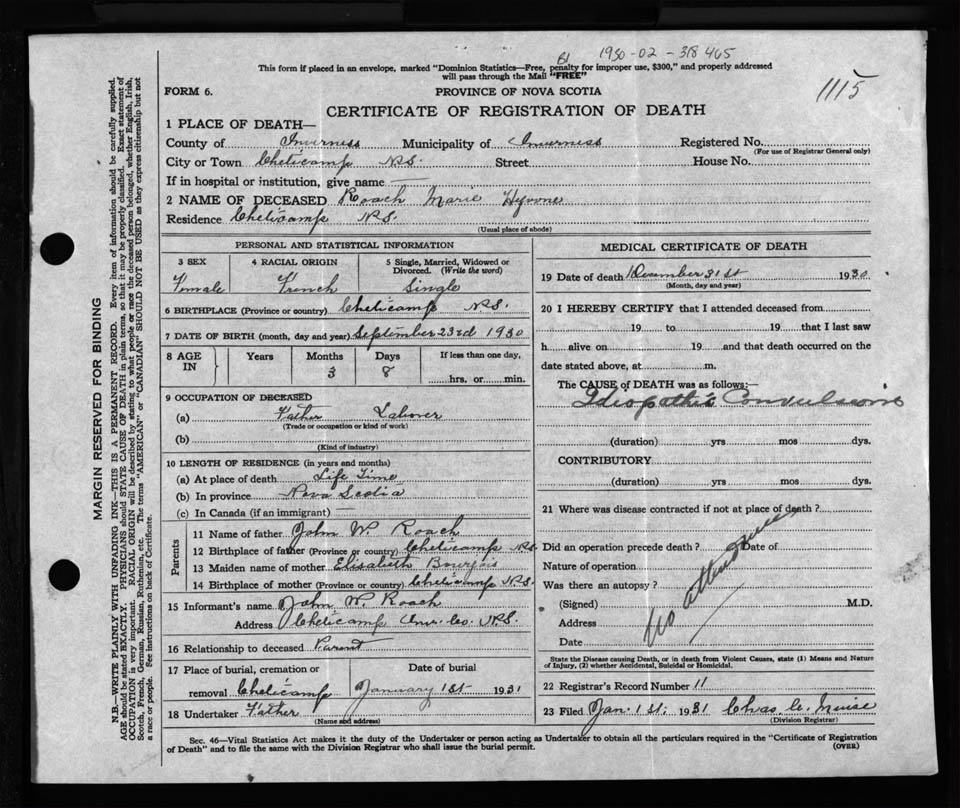 1930-02-318465
This form if placed in an envelope, marked "Dominion Statistics—Free, penalty for improper use, $300," and properly addressed
will pass through the Mail "FREE"
1115
FORM 6.
PROVINCE OF NOVA SCOTIA
CERTIFICATE OF REGISTRATION OF DEATH
1 PLACE OF DEATH—
County of Inverness Municipality of Inverness Registered No.
(For use of Registrar General only)
City or Town Cheticamp N.S. Street House No.
If in hospital or institution, give name
2 NAME OF DECEASED Roach Marie Hyvone
Residence Cheticamp N.S.
(Usual place of abode)
PERSONAL AND STATISTICAL INFORMATION
3 SEX 4 RACIAL ORIGIN 5 Single, Married, Widowed or Divorced. (Write the word)
Female French Single
6 BIRTHPLACE (Province or country) Cheticamp N.S.
7 DATE OF BIRTH (month, day and year) September 23rd 1930
8 AGE IN Years Months Days If less than one day,
3 8 hrs. or min.
9 OCCUPATION OF DECEASED
(a) Father Laborer
(Trade or occupation or kind of work)
(b)
(Kind of industry)
10 LENGTH OF RESIDENCE (in years and months)
(a) At place of death Life Time
(b) In province Nova Scotia
(c) In Canada (if an immigrant) —
Parents
11 Name of father John W. Roach
12 Birthplace of father (Province or country) Cheticamp N.S.
13 Maiden name of mother Elisabeth Bourgois
14 Birthplace of mother (Province or country) Cheticamp N.S.
15 Informant's name John W. Roach
Address Cheticamp Inv. Co. N.S.
16 Relationship to deceased Parent
17 Place of burial, cremation or Date of burial
removal Cheticamp January 1st 1931
18 Undertaker Father
(Name and address)
MEDICAL CERTIFICATE OF DEATH
19 Date of death December 31st 1930
(Month, day and year)
20 I HEREBY CERTIFY that I attended deceased from
19 to 19 that I last saw
h alive on 19 and that death occurred on the
date stated above, at m.
The CAUSE of DEATH was as follows:—
Idiopathic Convulsions
(duration) yrs mos dys.
CONTRIBUTORY
(duration) yrs mos dys.
21 Where was disease contracted if not at place of death?
Did an operation precede death? Date of
Nature of operation
Was there an autopsy?
(Signed) M.D.
Address
Date
No attendance
State the Disease causing Death, or in death from Violent Causes, state (1) Means and Nature
of Injury, (2) whether Accidental, Suicidal or Homicidal.
22 Registrar's Record Number 11
23 Filed Jan. 1st. 1931 Chas. 
(Division Registrar)
Sec. 46—Vital Statistics Act makes it the duty of the Undertaker or person acting as Undertaker to obtain all the particulars required in the "Certificate of Registration
of Death" and to file the same with the Division Registrar who shall issue the burial permit.
(OVER)
MARGIN RESERVED FOR BINDING
N.B.—WRITE PLAINLY WITH UNFADING INK—THIS IS A PERMANENT RECORD. Every item of information should be carefully supplied.
AGE should be stated EXACTLY. PHYSICIANS should STATE CAUSE OF DEATH in plain terms, so that it may be properly classified. Exact statement of
OCCUPATION is very important. RACIAL ORIGIN will be described by stating to what people or race the deceased person belonged, whether English, Irish,
Scotch, French, German, Russian, Ruthenian, etc. The terms "AMERICAN" or "CANADIAN" SHOULD NOT BE USED as they express citizenship but not
a race or people. See instructions on back of Certificate.